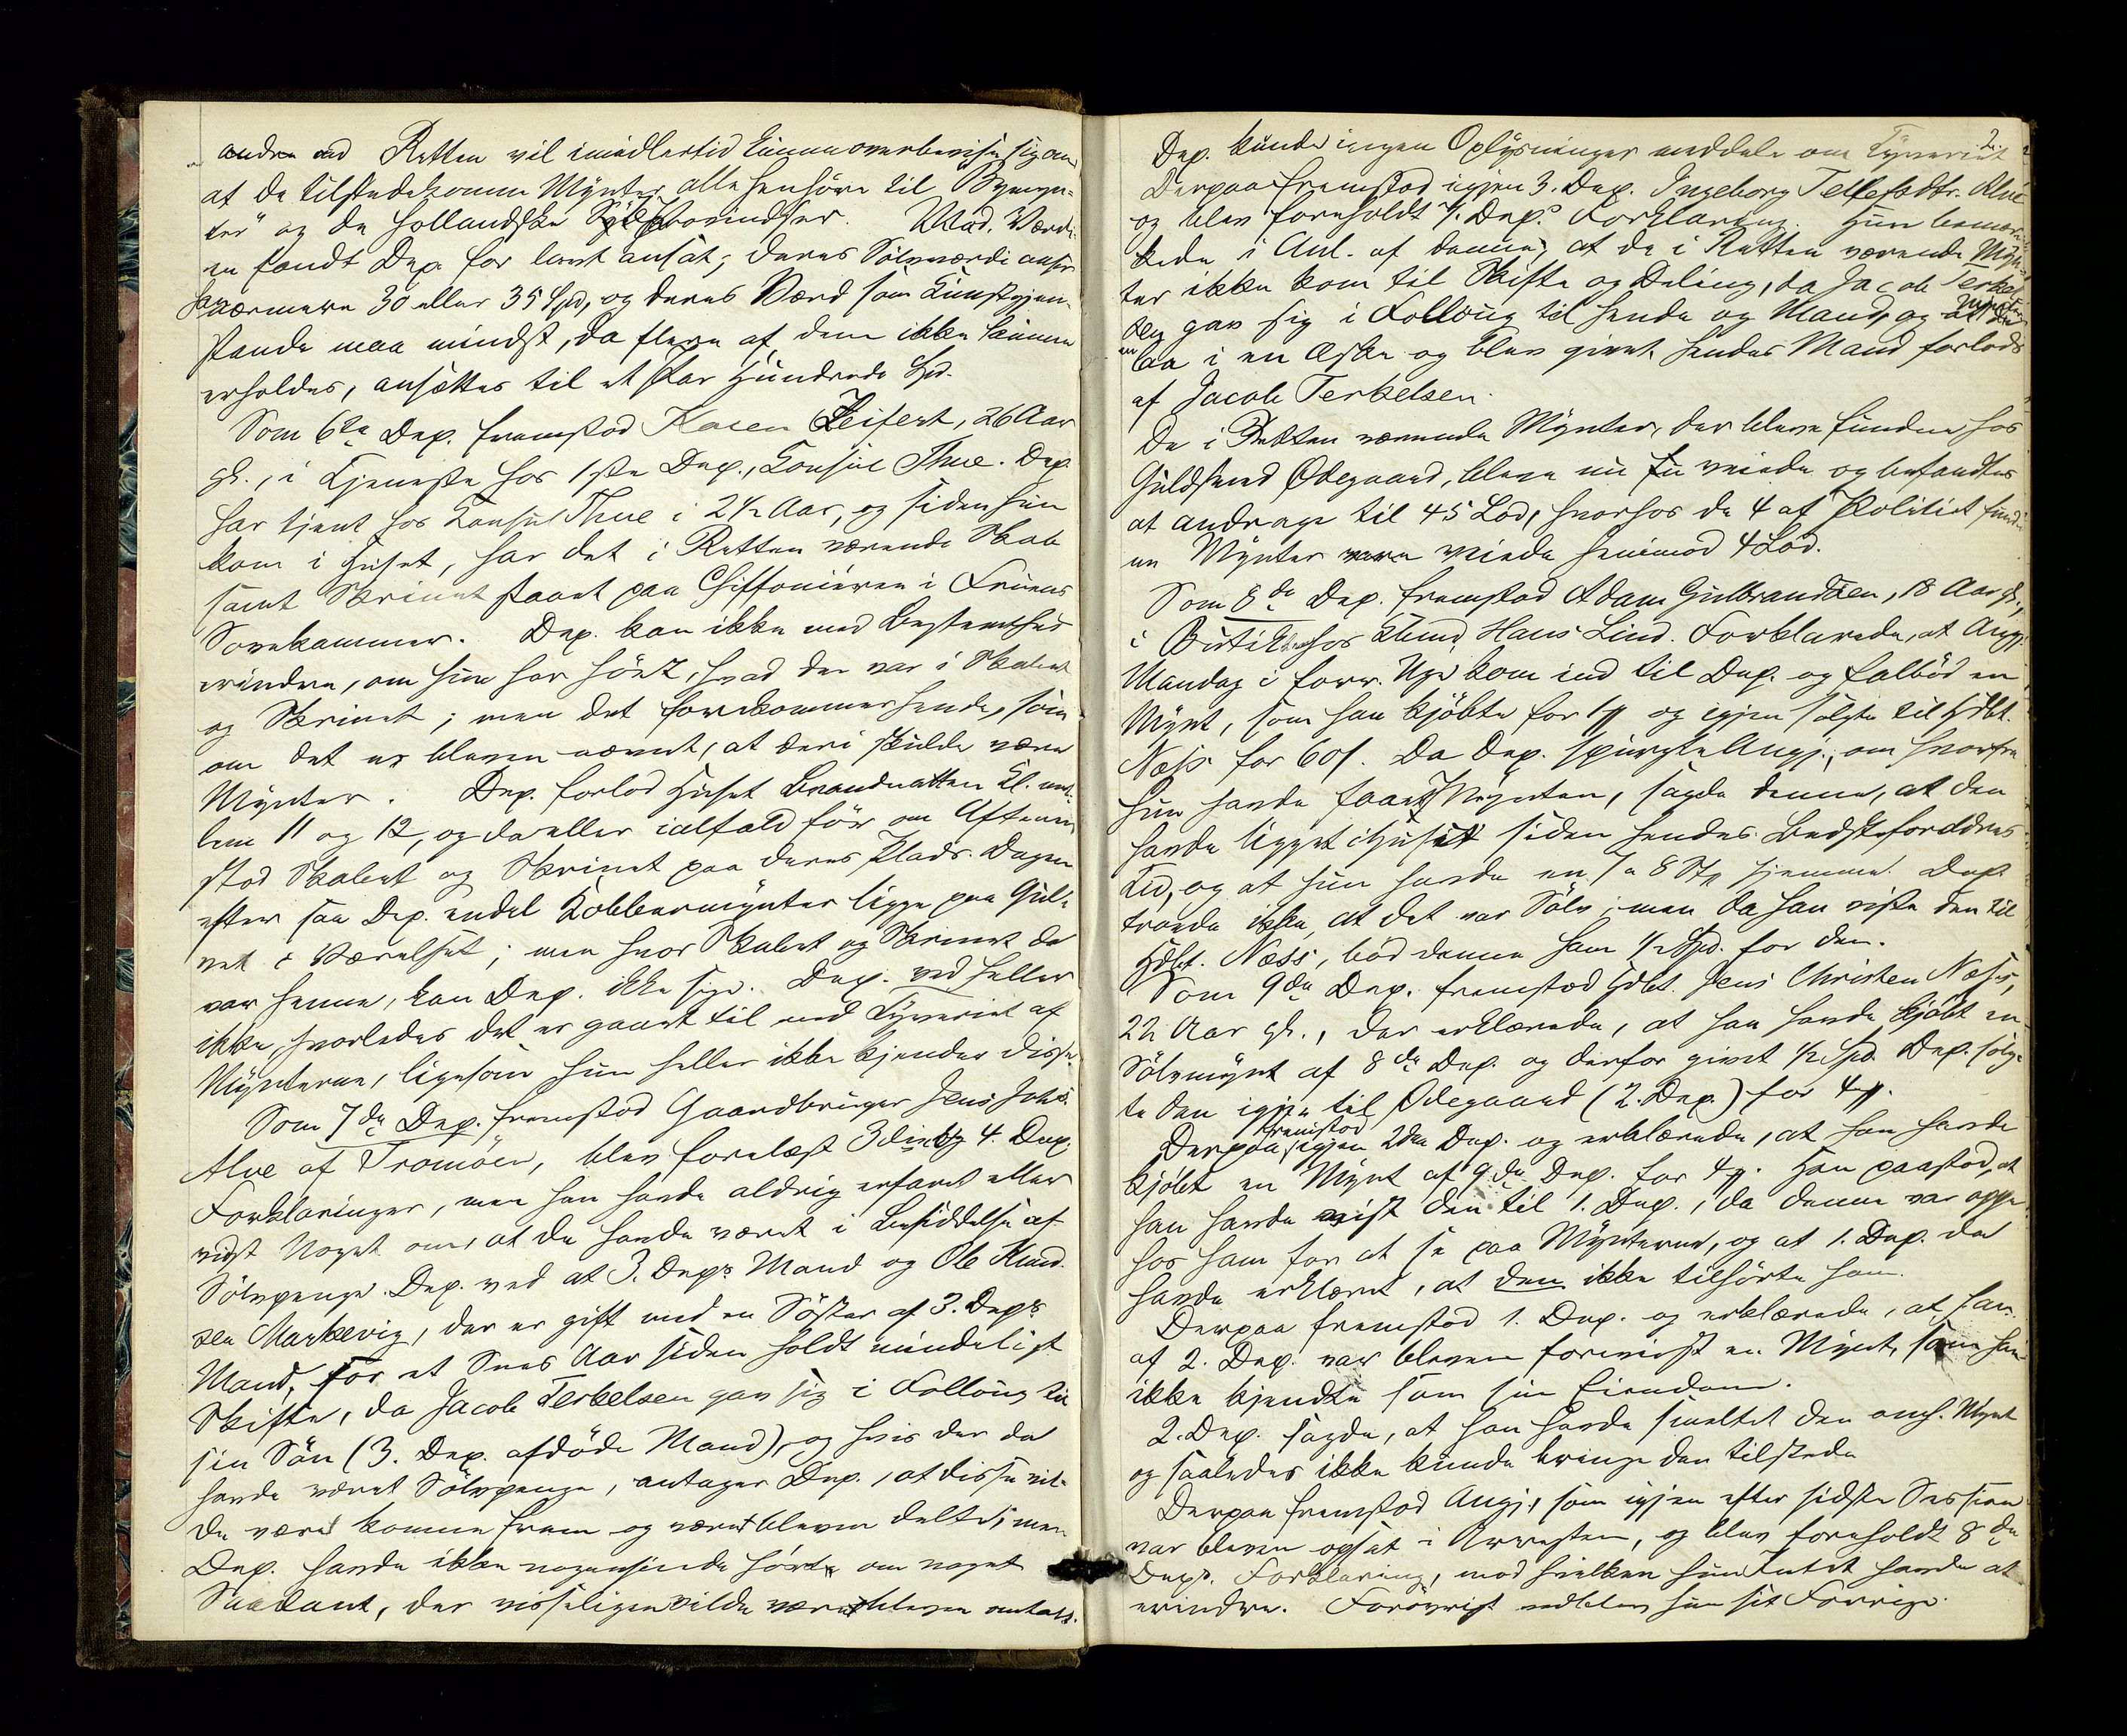 andre end Retten vil imidlertid kunne overbevise sig om,
at de tilstedekomne Mynter alle henhöre til "Bymyn-
ter" og de hollandske Sölvprovindser. Mad. Værdi-
en fandt Dep. for lavt ansat; deres Sölvværdi anser
han nærmere 30 eller 35 Spd, og deres Værd som Kunstgjen-
stande maa mindst, da flere af dem ikke kunne
erholdes, ansættes til et Par Hundrede Spd.
Som 6te Dep. fremstod Karen Zeifert, 26 Aar
gl., i Tjeneste hos 1ste Dep., Konsul Thue. Dep.
har tjent hos Konsul Thue i 2½ Aar, og siden hun
kom i Huset, har det i Retten værende Skab
samt Skrinet staaet paa Chiffoniéren i Fruens
Sovekammer. Dep. kan ikke med Bestemthed
erindre, om hun har hört, hvad der var i Skabet
og Skrinet; men det forekommer hende, som
om det er bleven nævnt, at deri skulde være
Mynter. Dep. forlod Huset Brandnatten Kl. mel-
lem 11 og 12, og da eller ialfald för om Aftenen
stod Skabet og Skrinet paa deres Plads. Dagen
efter saa Dep. endel Kobbermynter ligge paa Gul-
vet i Værelset; men hvor Skabet og Skrinet da
var henne, kan Dep. ikke sige. Dep. ved heller
ikke, hvorledes det er gaaet til med Tyveriet af
Mynterne, ligesom hun heller ikke kjender disse.
Som 7de Dep. fremstod Gaardbruger Jens Johs.
Alve af Tromöen, blev forelæst 3die og 4. Dep.
Forklaringer, men han havde aldrig erfaret eller
vidst Noget om, at de havde været i Besiddelse af
Sölvpenge. Dep. ved at 3. Deps Mand og Ole Knud-
sen Markevig, der er gift med en Söster af 3. Deps
Mand, for et Snes Aar siden holdt mindeligt
Skifte, da Jacob Terkelsen gav sig i Follöug til
sin Sön (3. Dep. afdöde Mand), og hvis der da
havde været Sölvpenge, antager Dep., at disse vil-
de være komne frem og været bleven delte; men
Dep. havde ikke nogensinde hört om noget
Saadant, der visseligen vilde været bleven omtalt.
2.
Dep. kunde ingen Oplysninger meddele om Tyveriet
Derpaa fremstod igjen 3. Dep. Ingeborg Tellefsdtr. Alve
og blev foreholdt 7. Deps Forklaring. Hun bemær-
kede i Anl. af denne, at de i Retten værende Myn-
ter ikke kom til Skifte og Deling, da Jacob Terkel-
sen gav sig i Follöug til hende og Mand, og at Mynterne
laa i en Æske og blev givet hendes Mand forlods
af Jacob Terkelsen.
De i Retten værende Mynter, der bleve fundne hos
Guldsmed Ødegaard, bleve nu veiede og befandtes
at andrage til 45 Lod, hvorhos de 4 af Politiet fund-
ne Mynter veiede henimod 4 Lod.
Som 8de Dep. fremstod Adam Gulbrandsen, 18 Aar gl.,
i Butik hos Kbmd. Hans Lind. Forklarede, at Angj.
Mandag i forr. Uge kom ind til Dep. og falböd en
Mynt, som han kjöbte for 1 ℔ og igjen solgte til Hdbt.
Næss for 60 s. Da Dep. spurgte Angj., om hvorfra
hun havde faaet Mynten, sagde denne, at den
havde ligget i Huset siden hendes Bedsteforældres
Tid, og at hun havde en 7 a 8 Stk hjemme. Dep.
troede ikke, at det var Sölv; men da han viste den til
Hdbt. Næss, böd denne ham ½ Spd. for den.
Som 9de Dep. fremstod Hdbt. Jens Christen Næss,
22 Aar gl., der erklærede, at han havde kjöbt en
Sölvmynt af 8de Dep. og derfor givet ½ Spd. Dep. solg-
te den igjen til Ødegaard (2. Dep.) for 4 ℔.
Derpaa fremstod igjen 2den Dep. og erklærede, at han havde
kjöbt en Mynt af 9de Dep. for 4 ℔. Han paastod, at
han havde vist den til 1. Dep., da denne var oppe
hos ham for at se paa Mynterne, og at 1. Dep. da
havde erklæret, at den ikke tilhörte ham.
Derpaa fremstod 1. Dep. og erklærede, at han
af 2. Dep. var bleven forevist en Mynt, som han
ikke kjendte som sin Eiendom.
2. Dep. sagde, at han havde smeltet den omh. Mynt
og saaledes ikke kunde bringe den tilstede
Derpaa fremstod Angj., som igjen efter sidste Session
var bleven opsat i Arresten, og blev foreholdt 8de
Deps. Forklaring, mod hvilken hun Intet havde at
erindre. Forövrigt vedblev hun sit Forrige.